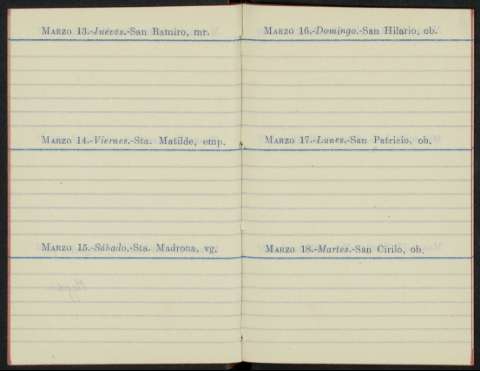 Marzo 13.-Jueves.-San Ramiro, mr.
Marzo 14.-Viernes.-Sta. Matilde, emp.
Marzo 15.-Sábado.-Sta. Madrona, vg.
Marzo 16.-Domingo.-San Hilario, ob.
Marzo 17.-Lunes.-San Patricio, ob.
Marzo 18.-Martes.-San Cirilo, ob.